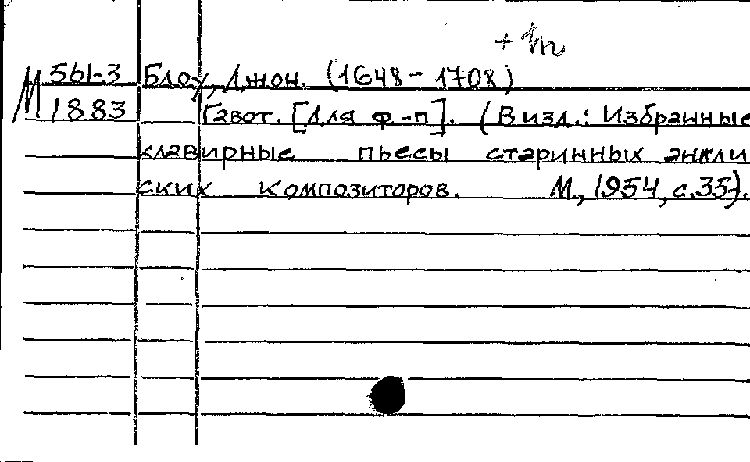 + 1п
М 561-3 Блоу, Джон. (1648-1708)
1883 Гавот. [Для ф.-п]. (В изд.: Избранные
клавирные пьесы старинных англи
ских композиторов. М., 1954, с.35).